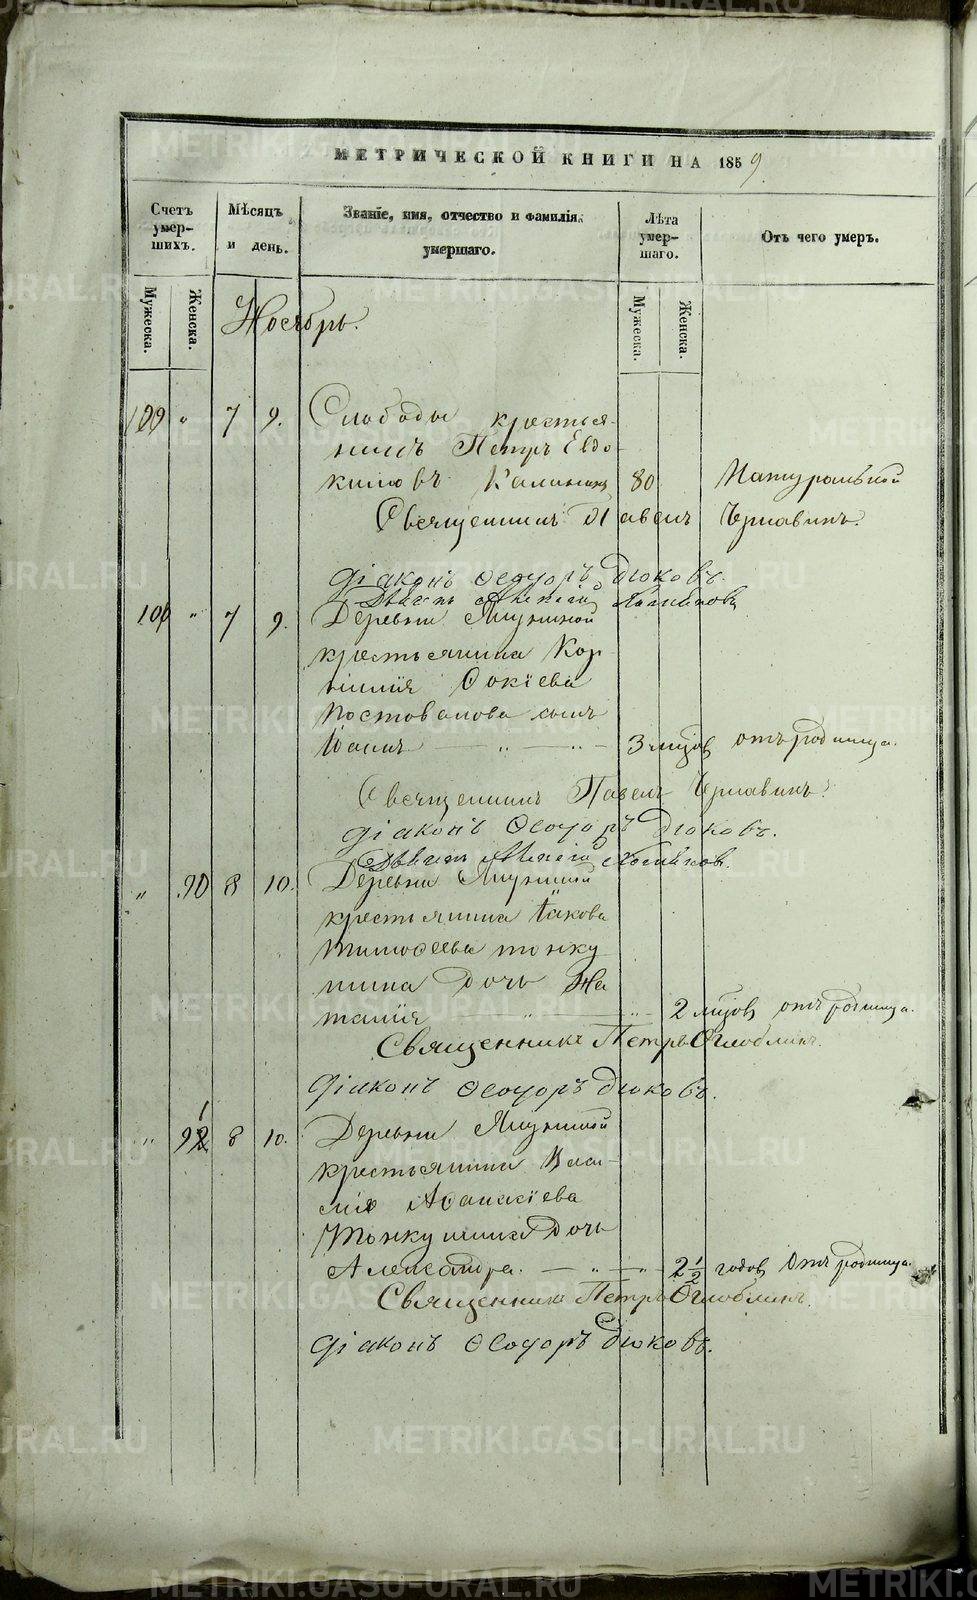 МЕТРИЧЕСКОЙ КНИГИ НА 1859
Счетъ умер- шихъ.
Мѣсяцъ и день.
Званіе, имя, отчество и фамилія умершаго.
Лѣта умер- шаго.
Отъ чего умеръ.
Мужеска.
Женска.
Мужеска.
Женска.
Ноябрь.
109 " 7 9. Слободы крестья-
нинъ Петръ Евдо-
кимовъ Калинин 80 Натуральной
Священникъ Павелъ Чернавинъ.
Діаконъ Ѳеодоръ Дюковъ.
100 " 7 9. Деревни
крестьянина Кор-
нилія Фокіева
Постовалова сынъ
Іоаннъ — " — " — 3 мцов отъ родимца.
Священникъ Павелъ Чернавинъ.
Діаконъ Ѳеодоръ Дюковъ.
" 90 8 10. Деревни
крестьянина Іакова
Тимоѳеева Тонку
шина дочь На
талия " — " — 2 мцов отъ родимца.
Священникъ Петръ Оглоблинъ.
Діаконъ Ѳеодоръ Дюковъ.
" 91 8 10. Деревни
крестьянина Васи-
лія Аѳанасіева
Тонкушина дочь
Александра. — " — " — 2 1/2 годов Отъ родимца.
Священникъ Петръ Оглоблинъ.
Діаконъ Ѳеодоръ Дюковъ.
METRIKI.GASO-URAL.RU